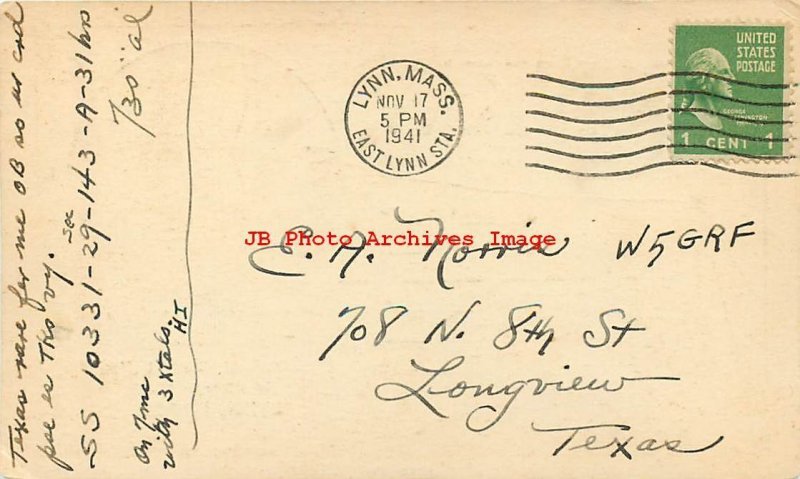 Texas rare fer me OB so ur crd
pse es tks vy.
Sec
SS 10331-29-143-A-31 hrs
73" al
On 7mc
with 3 xtals.
HI
LYNN, MASS.
NOV 17
5 PM
1941
EAST LYNN STA.
UNITED
STATES
POSTAGE
GEORGE
WASHINGTON
1 CENT 1
JB Photo Archives Image
E. A. Norris W5GRF
708 N. 8th St
Longview
Texas